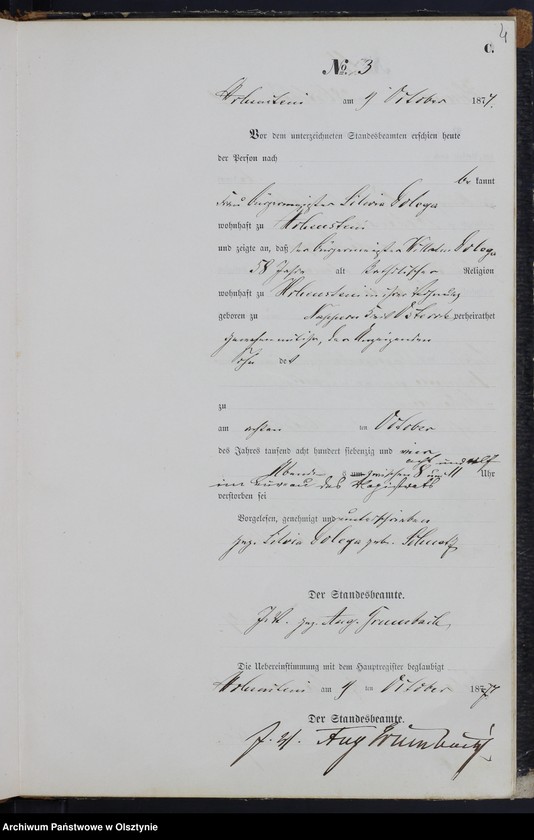 4
C.
No. 3
Hohenstein am 9 October 1874.
Vor dem unterzeichneten Standesbeamten erschien heute
der Person nach
bekannt
Frau Bürgermeister Silvia Dolega
wohnhaft zu Hohenstein
und zeigte an, daß der Bürgermeister Wilhelm Dolega
58 Jahre alt katholischer Religion
wohnhaft zu Hohenstein in ihrer Wohnung
geboren zu Osterode verheirathet
gewesen mit ihr, der Anzeigenden
Sohn des
zu
am achten ten October
des Jahres tausend acht hundert siebenzig und vier
acht und elf
Abends zwischen 8 und 11 Uhr
im Bureau des Magistrats
verstorben sei
Vorgelesen, genehmigt und unterschrieben
gez. Silvia Dolega geb.
Der Standesbeamte.
J. V. gez. Aug. Grumbach
Die Uebereinstimmung mit dem Hauptregister beglaubigt
Hohenstein am 9 ten October 1874
Der Standesbeamte.
J. V. Aug Grumbach
Archiwum Państwowe w Olsztynie